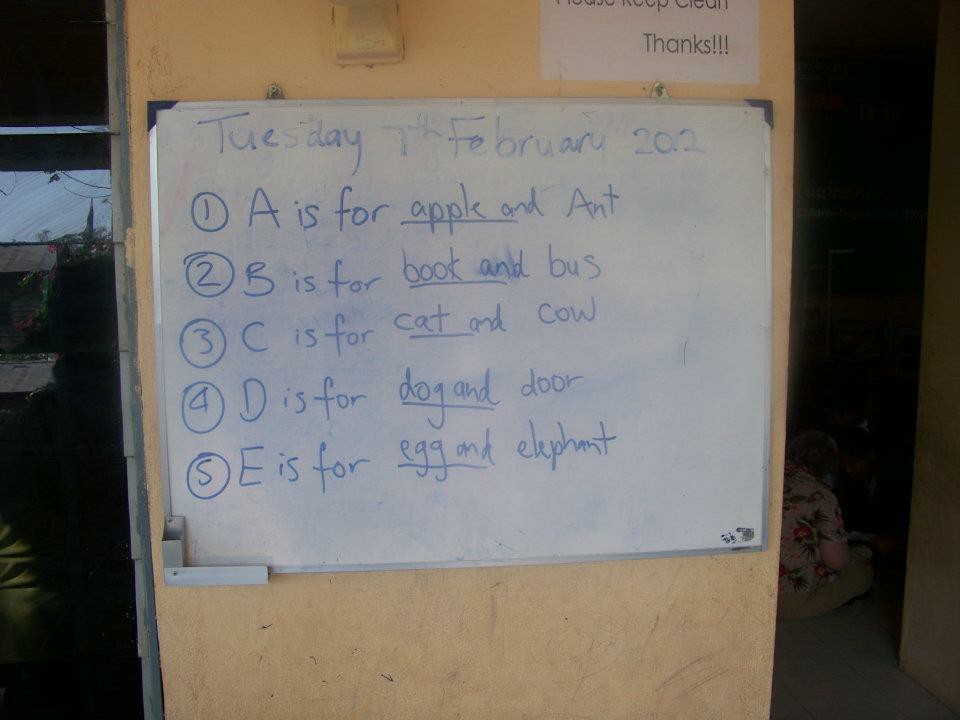 Please Keep Clean
Thanks!!!
Tuesday 7th February 2012
① A is for apple and Ant
② B is for book and bus
③ C is for cat and cow
④ D is for dog and door
⑤ E is for egg and elephant